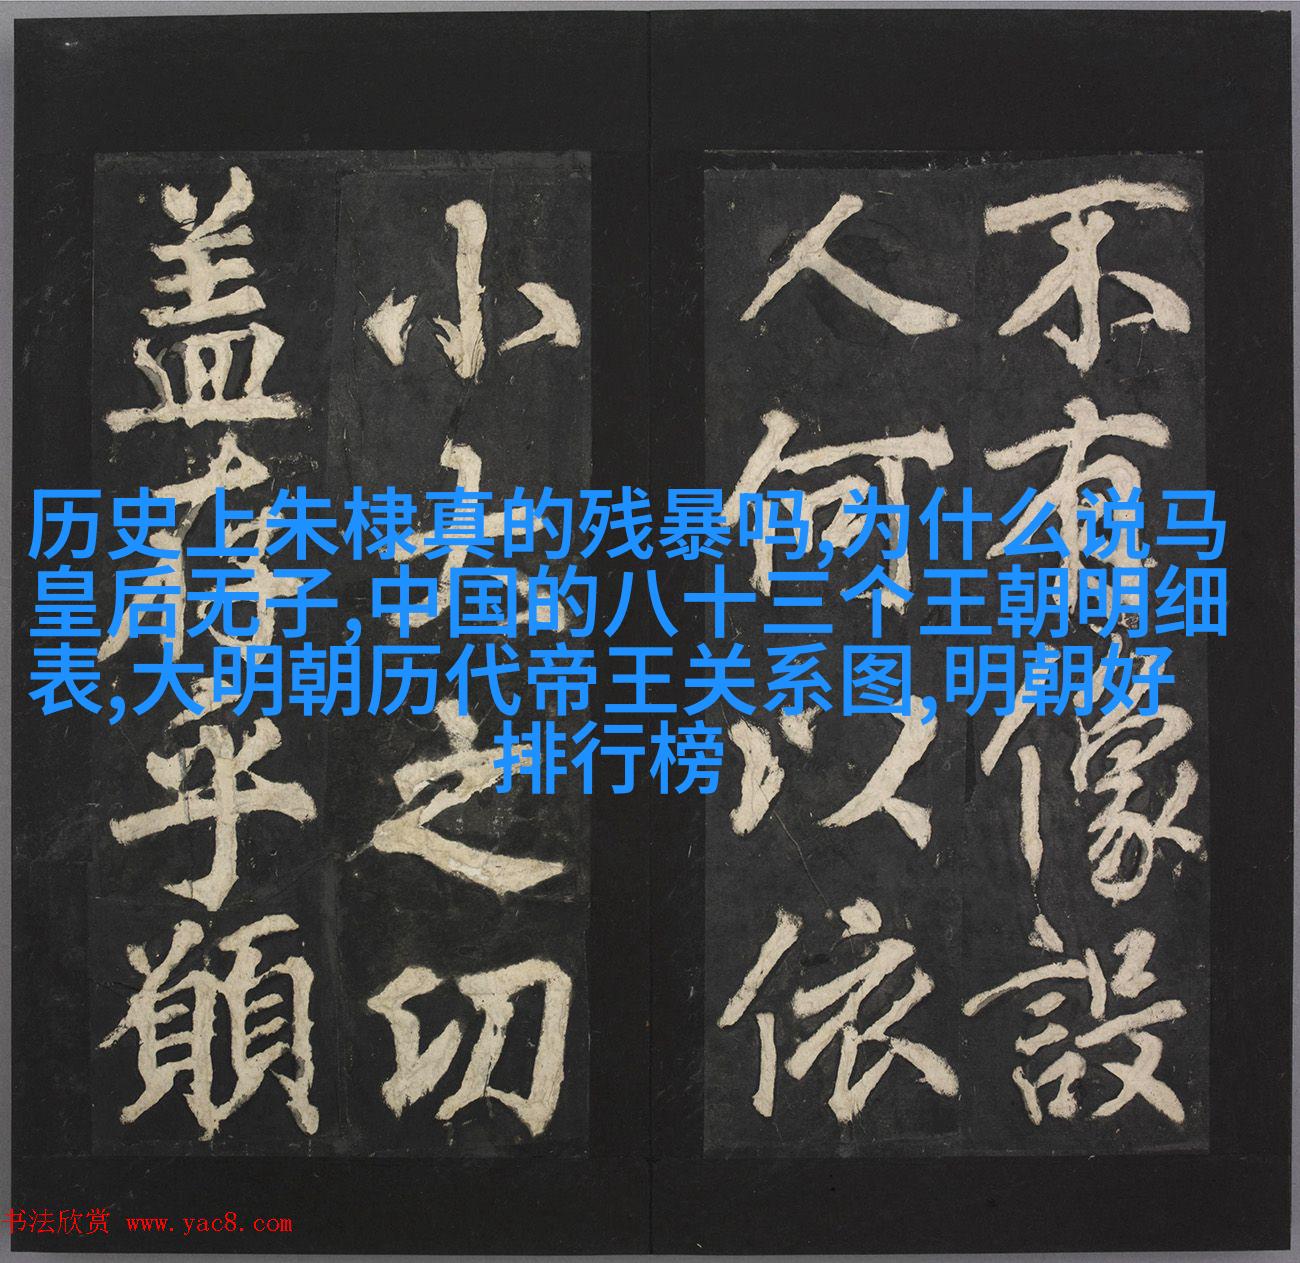 历史上朱棣真的残暴吗,为什么说马
皇后无子,中国的八十三个王朝明细
表,大明朝历代帝王关系图,明朝好
排行榜
不有像設
人何以依
小大之切
盖存乎
书法欣赏 www.yac8.com